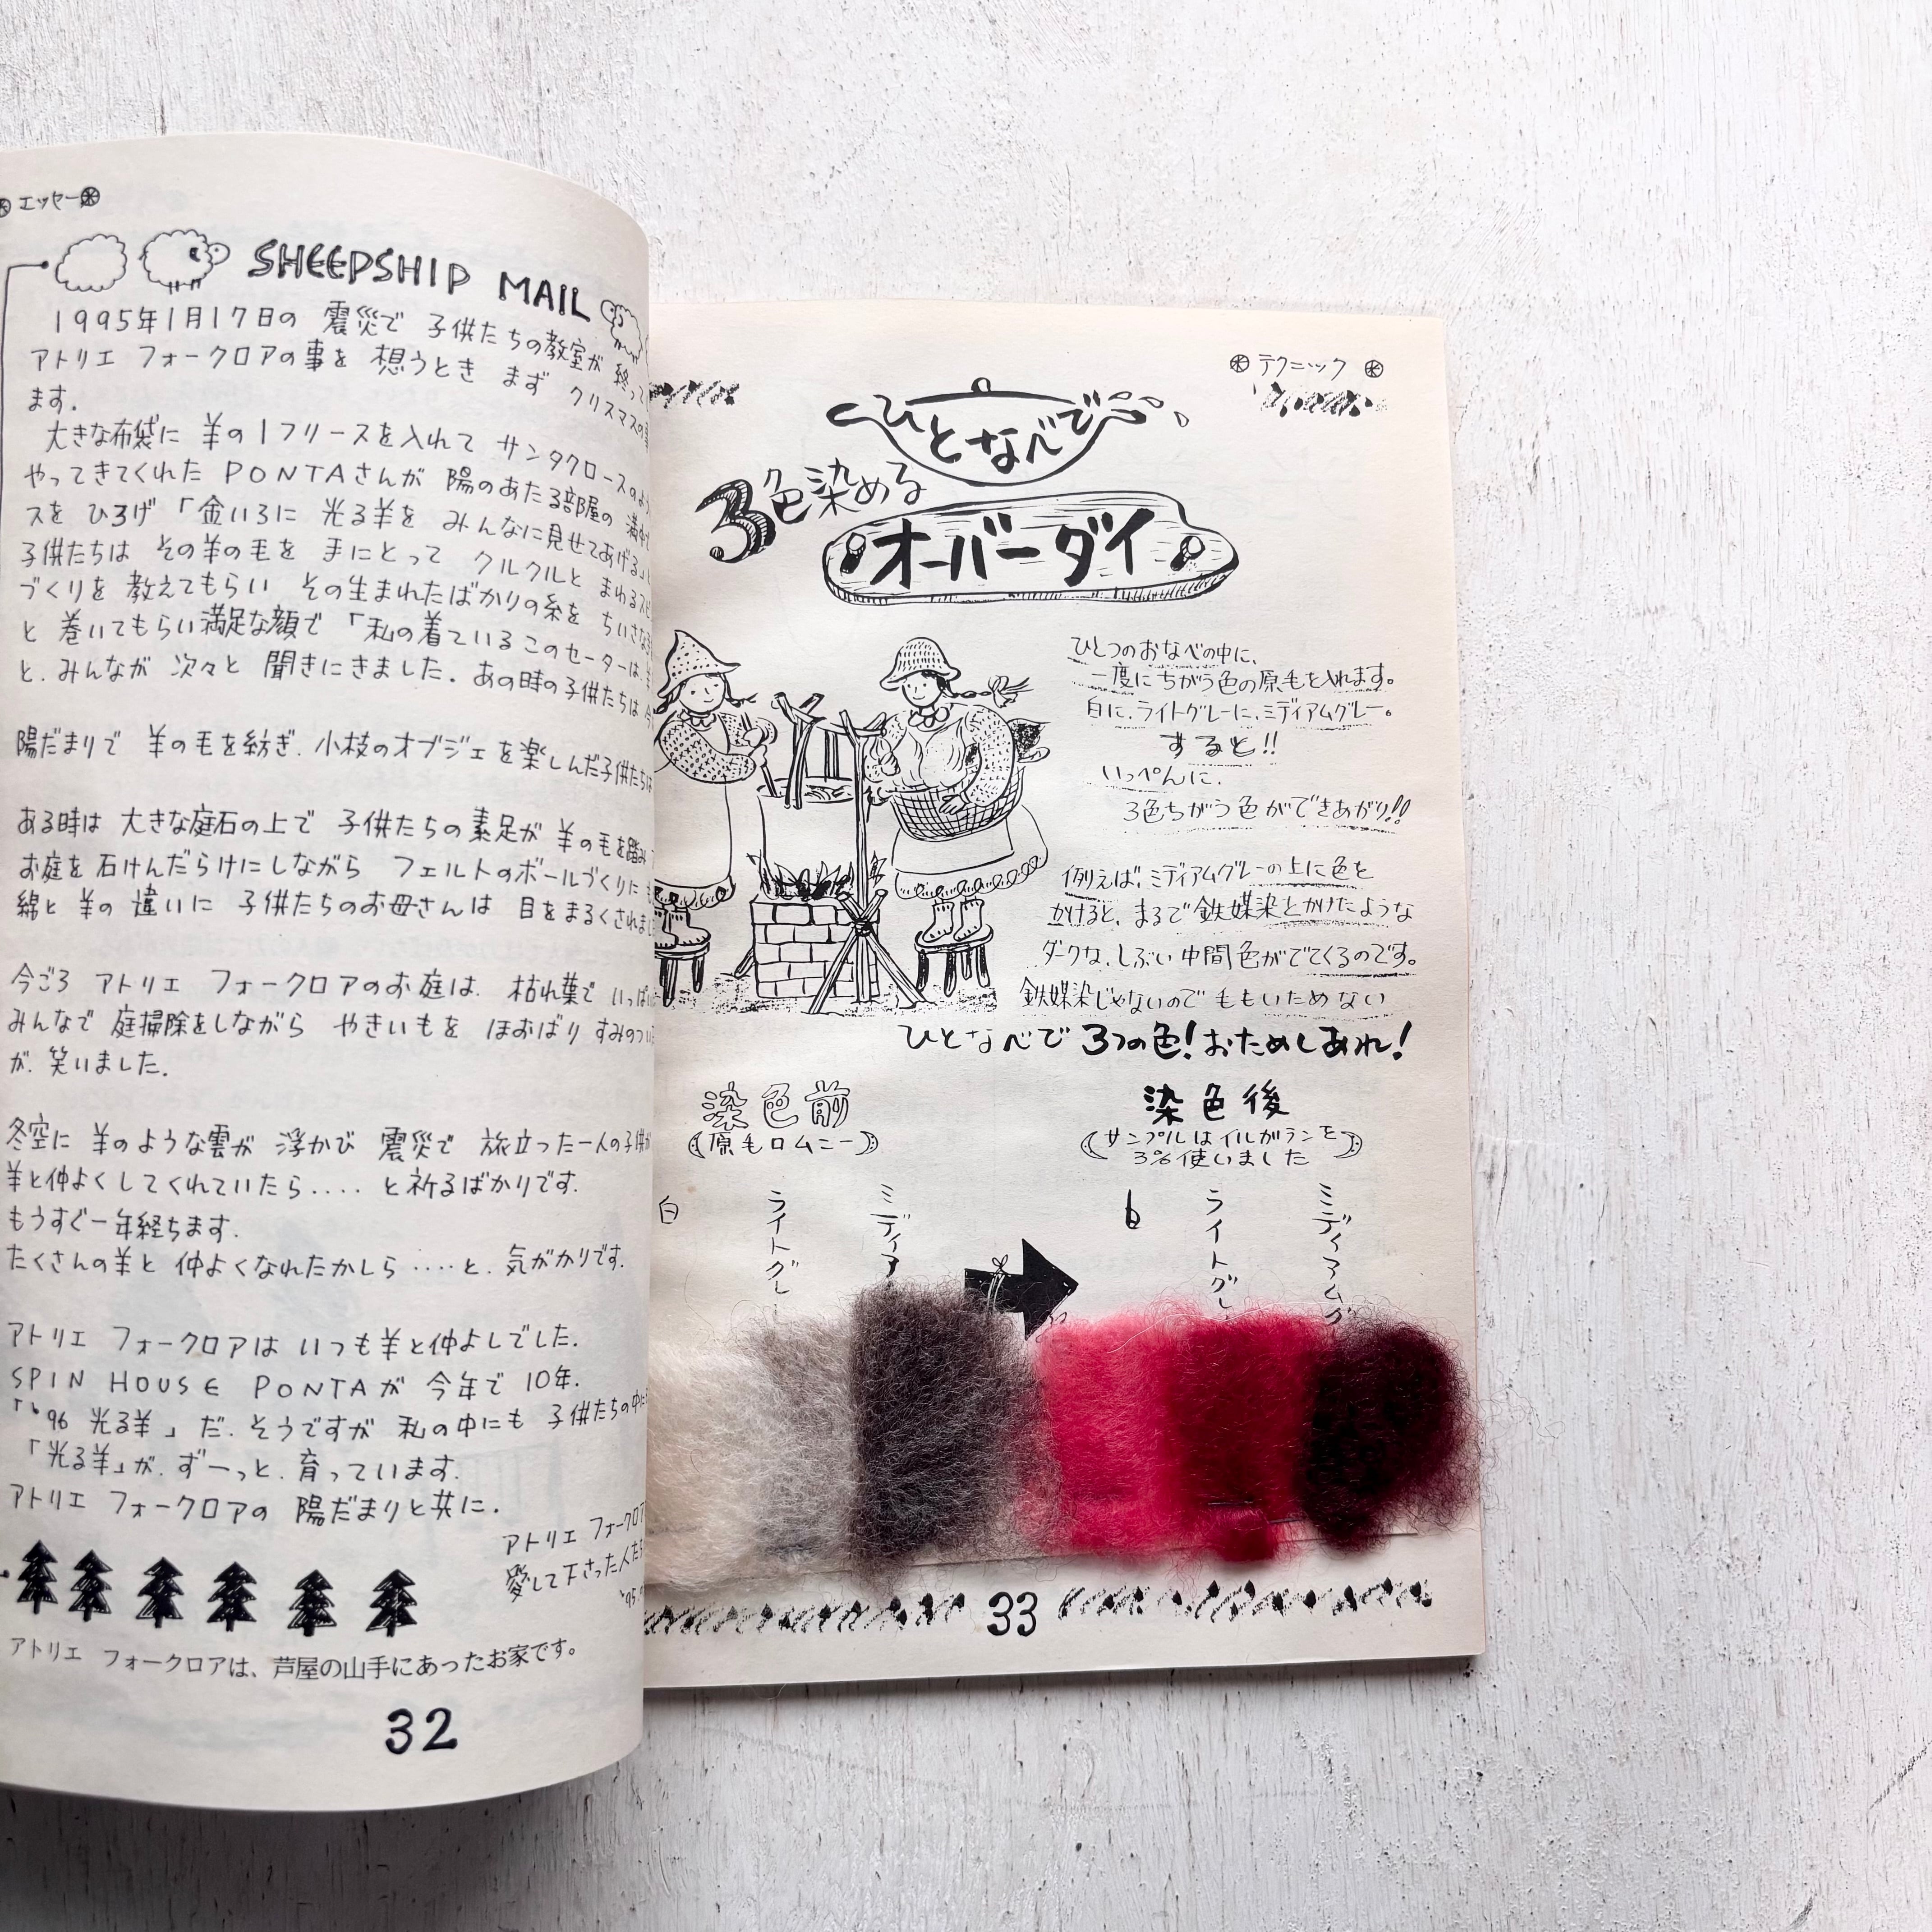 エッセー
SHEEPSHIP MAIL
1995年1月17日の 震災で 子供たちの教室が 終って
アトリエ フォークロアの事を 想うとき まず クリスマスの
ます.
大きな布袋に 羊の1フリースを入れて サンタクロースのよう
やってきてくれた PONTAさんが 陽のあたる部屋の
スを ひろげ 「金いろに 光る羊を みんなに見せてあげる」
子供たちは その羊の毛を 手にとって クルクルと まわるスピ
づくりを 教えてもらい その生まれたばかりの糸を ちいさな
と 巻いてもらい満足な顔で 「私の着ているこのセーターは、
と.みんなが 次々と 聞きにきました. あの時の子供たちは 今
陽だまりで 羊の毛を紡ぎ.小枝のオブジェを楽しんだ子供たちは
ある時は 大きな庭石の上で 子供たちの素足が 羊の毛を踏み
お庭を石けんだらけにしながら フェルトのボールづくりに
綿と 羊の 違いに 子供たちのお母さんは 目をまるくされまし
今ごろ アトリエ フォークロアのお庭は. 枯れ葉で いっぱい
みんなで 庭掃除をしながら やきいもを ほおばり すみのつい
が.笑いました.
冬空に 羊のような雲が 浮かび 震災で 旅立った一人の子供が
羊と仲よくしてくれていたら.... と祈るばかりです.
もうすぐ一年経ちます.
たくさんの羊と 仲よくなれたかしら ....と.気がかりです.
アトリエ フォークロアは いつも羊と仲よしでした.
SPIN HOUSE PONTAが 今年で 10年.
「'96 光る羊」だ.そうですが 私の中にも 子供たちの中に
「光る羊」が.ずーっと.育っています.
アトリエ フォークロアの 陽だまりと共に.
アトリエ フォークロア
愛して下さった人たち
'95
アトリエ フォークロアは、芦屋の山手にあったお家です。
32
テクニック
ひとなべで
3色染める
オーバーダイ
ひとつのおなべの中に、
一度にちがう色の原毛を入れます。
白に、ライトグレーに、ミディアムグレー。
すると!!
いっぺんに、
3色ちがう色ができあがり!!
例えば、ミディアムグレーの上に色を
かけると、まるで鉄媒染とかけたような
ダークな、しぶい中間色がでてくるのです。
鉄媒染じゃないので毛もいためない
ひとなべで 3つの色!おためしあれ!
染色前
(原毛ロムニー)
白
ライトグレー
ミディア
染色後
(サンプルはイルガランを
3%使いました)
白
ライトグレ
ミディアムグ
33